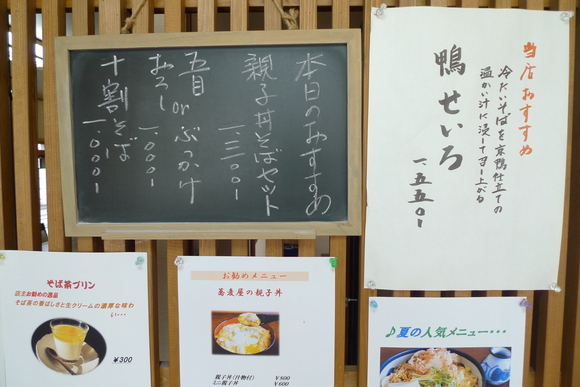 本日のおすすめ
親子丼そばセット
一、三〇〇1
五目
おろし or ぶっかけ
一、〇〇〇1
十割そば
一、〇〇〇1
当店おすすめ
冷たいそばを京鴨仕立ての
温かい汁に浸して召し上がる
鴨せいろ
一、五五〇1
そば茶プリン
店主お勧めの逸品
そば茶の香ばしさと生クリームの濃厚な味わ
い・・・・
¥300
お勧めメニュー
蕎麦屋の親子丼
親子丼(汁物付) ¥800
ミニ親子丼 ¥600
♪夏の人気メニュー・・・